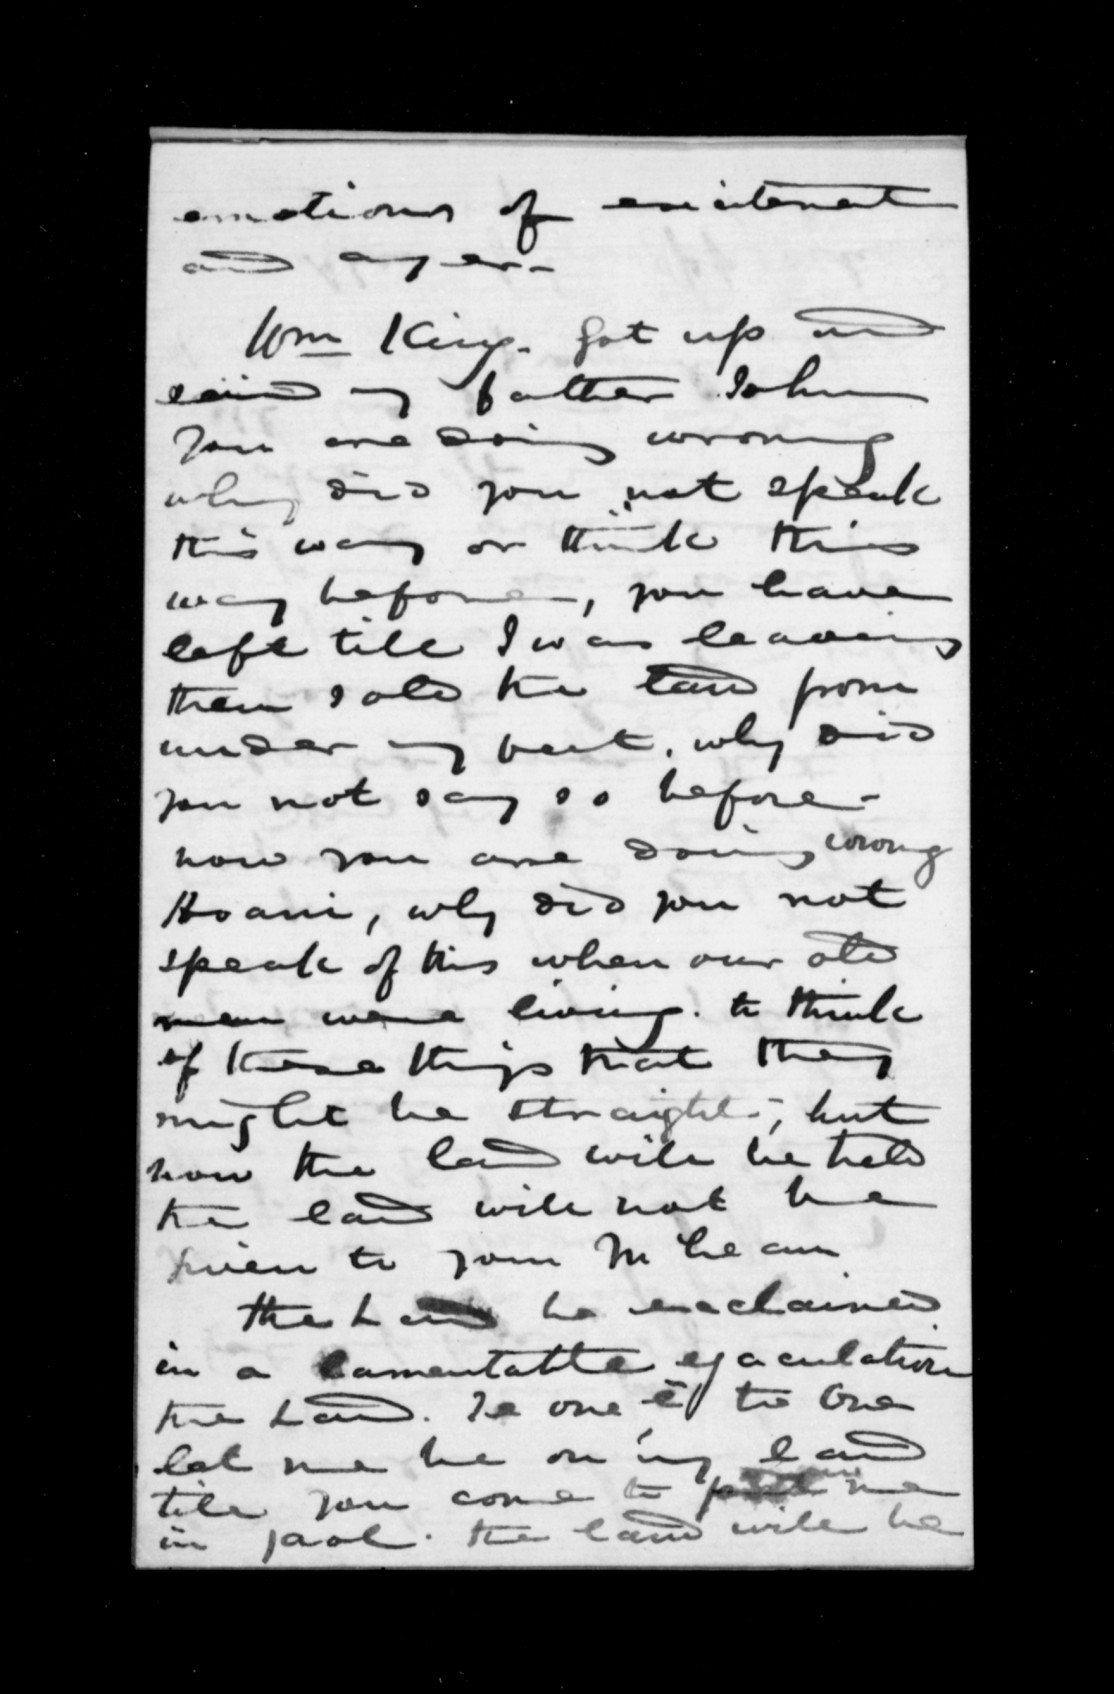 emotions of excitement
and anger -
Wm King. Got up and
said my father John
you are doing wrong
why did you not speak
this way or think this
way before, you have
left till I was leaving
them sold the land from
under my feet. why did
you not say so before -
now you are doing wrong
Hoani, why did you not
speak of this when our old
men were living. to think
of these things that they
might be straight -, but
now the land will be held
the land will not be
given to you McLean
the Land he exclaimed
in a lamentable ejaculation
the Land. Te one e, te One
let me be on my land
till you come to put me
in jaol. the land will be